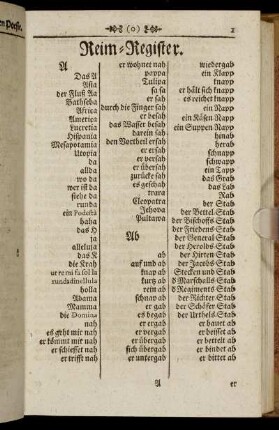 en Poesie.
(o)
1
Reim-Register.
A
Das A
Asia
der Fluß Aa
Bathseba
Africa
America
Lucretia
Hispania
Mesopotamia
Utopia
da
allda
wo da
wer ist da
siehe da
runda
ein Podestà
haha
das H
ja
alleluja
das K
die Krah
ut re mi fa sol la
rundadinellula
holla
Adama
Mamma
die Domina
nah
es geht mir nah
er kommt mir nah
er schiesset nah
er trifft nah
er wohnet nah
pappa
Tulipa
sa sa
er sah
durch die Finger sah
er besah
das Wasser besah
darein sah
den Vortheil ersah
er ersah
er versah
er übersah
zurücke sah
es geschah
trara
Cleopatra
Jehova
Pultawa
Ab
ab
auf und ab
knap ab
kurtz ab
rein ab
schnap ab
er gab
es begab
er ergab
er vergab
er übergab
sich übergab
er untergab
A
wiedergab
ein Klapp
knapp
er hält sich knapp
es reichet knapp
ein Napp
ein Käsen-Napp
ein Suppen-Napp
herab
schnapp
schwapp
ein Tapp
das Grab
das Lab
Rab
der Stab
der Bettel-Stab
der Bischoffs-Stab
der Friedens-Stab
der General-Stab
der Herolds-Stab
der Hirten-Stab
der Jacobs-Stab
Stecken und Stab
d Marschalls-Stab
d Regiments-Stab
der Richter-Stab
der Schäfer-Stab
der Urtheils-Stab
er hauet ab
er beisset ab
er bettelt ab
er bindet ab
er bittet ab
er